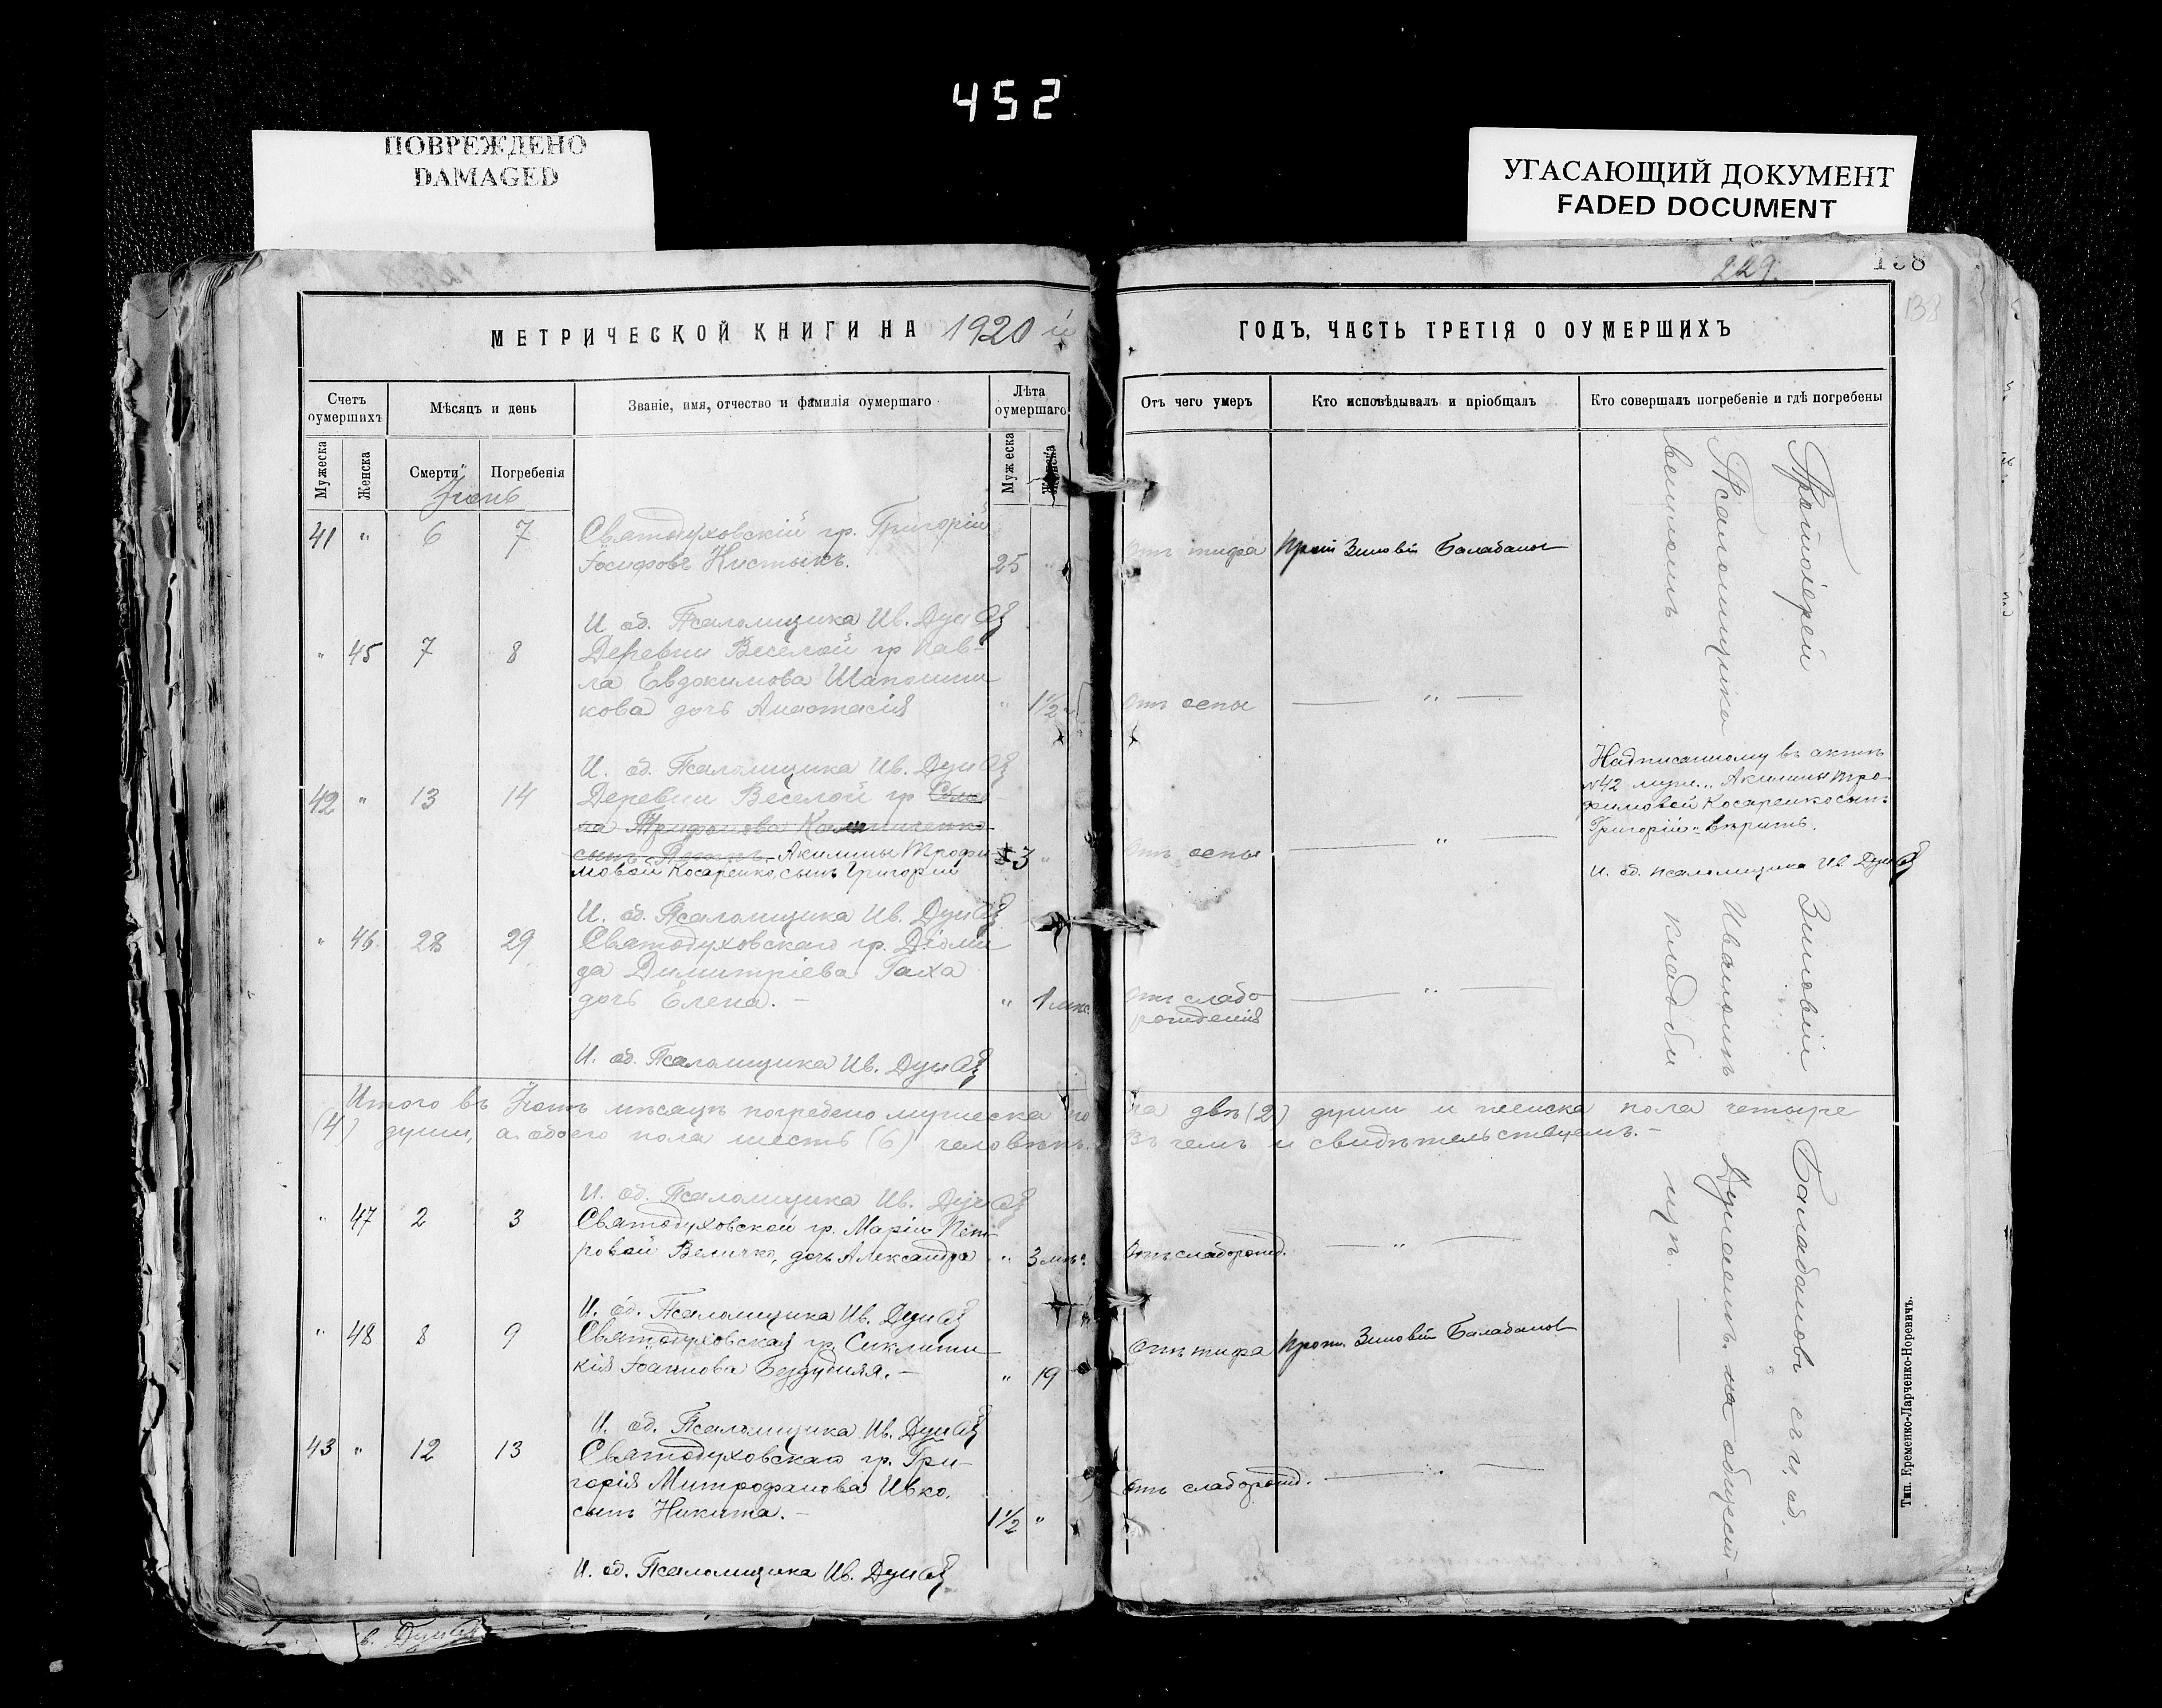 452
ПОВРЕЖДЕНО
DAMAGED
УГАСАЮЩИЙ ДОКУМЕНТ
FADED DOCUMENT
229.
138
138
МЕТРИЧЕСКОЙ КНИГИ НА 1920 й
ГОДЪ, ЧАСТЬ ТРЕТІЯ О ОУМЕРШИХЪ
Счетъ оумершихъ
Мѣсяцъ и день
Званіе, имя, отчество и фамилія оумершаго
Лѣта оумершаго
Отъ чего умеръ
Кто исповѣдывалъ и пріобщалъ
Кто совершалъ погребеніе и гдѣ погребены
Мужеска
Женска
Смерти
Погребенія
Мужеска
Женска
Іюнь
41 " 6 7 Святодуховскій гр. Григорій
Іосифовъ Кистыкъ. 25 "
Отъ тифа Прот. Зиновій Балабанов
И. об. Псаломщика Ив. Дун
" 45 7 8 Деревни Веселой гр. Пав-
ла Евдокимова Шапошни
кова дочь Анастасія " 1½
Отъ оспы — " —
И. об. Псаломщика Ив. Дун
42 " 13 14 Деревни Веселой гр.
на Трифонова Калиниченко
сынъ Акилины Трофи-
мовой Косаренко, сынъ Григорій 3 "
Отъ оспы — " —
Надписанному въ актѣ
№42 муж. „Акилины Тро-
фимовой Косаренко сынъ
Григорій" вѣрить.
И. об. псаломщика Ив. Дун
И. об. Псаломщика Ив. Дун
" 46 28 29 Святодуховскаго гр. Діоми
да Димитріева Гаха
дочь Елена. — " 1 мѣс.
Отъ слабо
рожденія — " —
И. об. Псаломщика Ив. Дун
Итого въ Іюнѣ мѣсяцѣ погребено мужеска по
ла двѣ (2) души и женска пола четыре
(4) души, а обоего пола шесть (6) человѣкъ.
Въ чемъ и свидѣтельствуемъ. —
И. об. Псаломщика Ив. Дун
" 47 2 3 Святодуховской гр. Маріи Пет-
ровой Величко, дочь Александра " 3 мѣс.
Отъ слаборожд. — " —
И. об. Псаломщика Ив. Дун
" 48 8 9 Святодуховская гр. Синклити-
кія Іоаннова Беззубняя. — " 19
Отъ тифа Прот. Зиновій Балабанов
И. об. Псаломщика Ив. Дун
43 " 12 13 Святодуховскаго гр. Гри-
горія Митрофанова Ивко,
сынъ Никита. — 1½ "
Отъ слаборожд. — " —
И. об. Псаломщика Ив. Дун
Протоіерей Зиновій Балабановъ съ и. об.
Псаломщика Иваномъ Дунаемъ. на общест-
венномъ кладби щѣ. —
Тип. Еременко-Ларченко-Норевичъ.